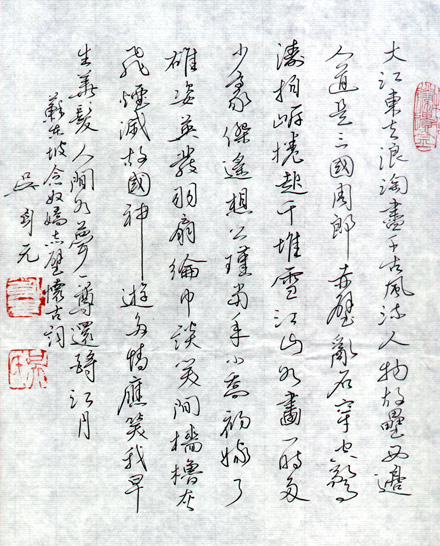 大江東去浪淘盡千古風流人物故壘西邊
人道是三國周郎赤壁亂石穿空驚
濤拍岸捲起千堆雪江山如畫一時多
少豪傑遙想公瑾當年小喬初嫁了
雄姿英發羽扇綸巾談笑間檣櫓灰
飛煙滅故國神遊多情應笑我早
生華髮人間如夢一尊還酹江月
蘇東坡念奴嬌赤壁懷古詞
吳 元